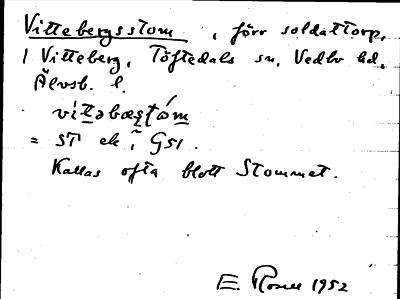 Vittebergsstom, förr soldattorp,
i Vitteberg, Töftedals sn, Vedbo hd,
Älvsb. l.
vi̇́təbæʂtå̀m
= ST ek i GS1.
Kallas ofta blott Stommet.
E. Rosell 1952